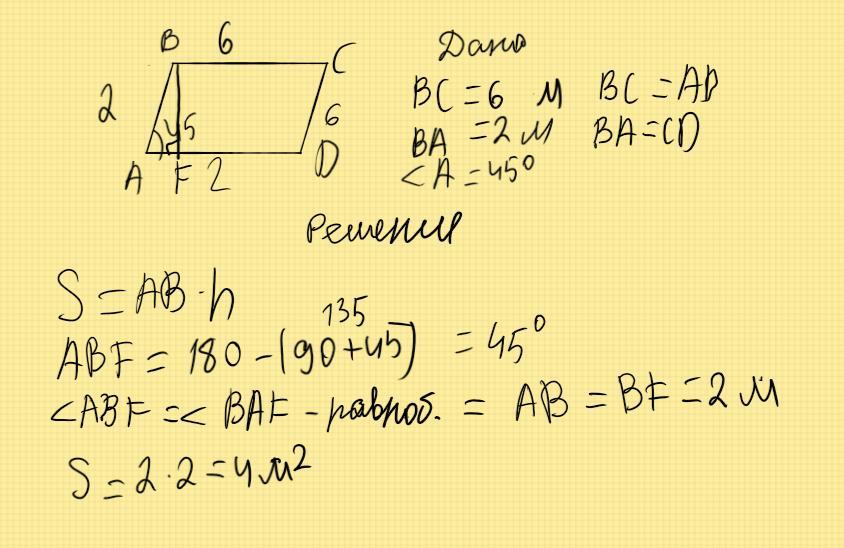 B 6 C
2 45 6
A F 2 D
Дано
BC = 6 м BC = AD
BA = 2 м BA = CD
<A = 45°
Решение
S = AB · h
135
ABF = 180 - (90 + 45) = 45°
<ABF = < BAF - равноб. = AB = BF = 2 м
S = 2 · 2 = 4 м²